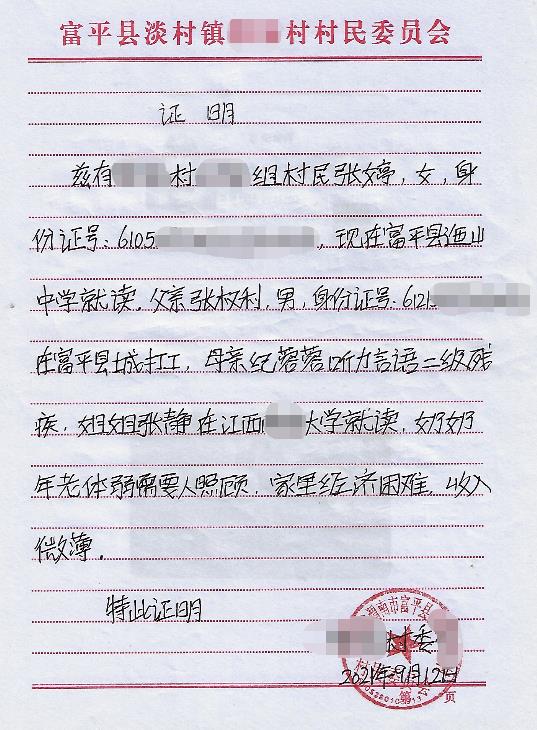 富平县淡村镇 村村民委员会
证 明
兹有 村 组村民张婷，女，身
份证号：6105 ，现在富平县迤山
中学就读。父亲张权利，男，身份证号：6121
在富平县城打工，母亲纪蓉蓉听力言语二级残
疾，姐姐张静在江西 大学就读，奶奶
年老体弱需要人照顾，家里经济困难，收入
微薄。
特此证明
市富平县
村委
2021年9月12日
第 页